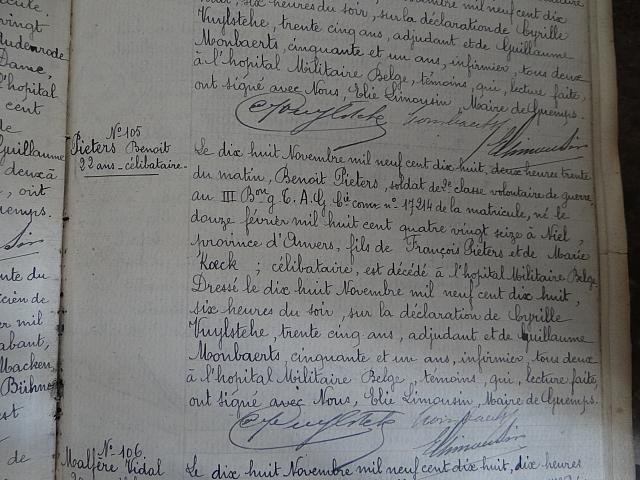 six heures du soir, sur la déclaration de Cyrille
Vuylsteke, trente cinq ans, adjudant et de Guillaume
Monbaerts, cinquante et un ans, infirmier, tous deux
à l'hopital Militaire Belge, témoins, qui, lecture faite,
ont signé avec Nous, Elie Limousin, Maire de Guemps.
CVuylsteke Monbaerts
ELimousin
N° 105
Pieters Benoit
22 ans - célibataire -
Le dix huit Novembre mil neuf cent dix huit, deux heures trente
du matin, Benoit Pieters, soldat de 2e classe volontaire de guerre,
au III Bon g. T. A. G. Cie comr. n° 17214 de la matricule, né le
douze février mil huit cent quatre vingt seize à Niel,
province d'Anvers, fils de François Pieters et de Marie
Kœck ; célibataire, est décédé à l'hopital Militaire Belge
Dressé le dix huit Novembre mil neuf cent dix huit,
six heures du soir, sur la déclaration de Cyrille
Vuylsteke, trente cinq ans, adjudant et de Guillaume
Monbaerts, cinquante et un ans, infirmier, tous deux
à l'hopital Militaire Belge, témoins, qui, lecture faite,
ont signé avec Nous, Elie Limousin, Maire de Guemps.
CVuylsteke Monbaerts
ELimousin
N° 106
Malfère Vidal
Le dix huit Novembre mil neuf cent dix huit, dix heures
vingt
Audenrode
Dame,
l'hopital
cent
de
Guillaume
deux à
, ont
Guemps.
nte du
icien de
er mil
abant,
Macken,
Bühne
est
de